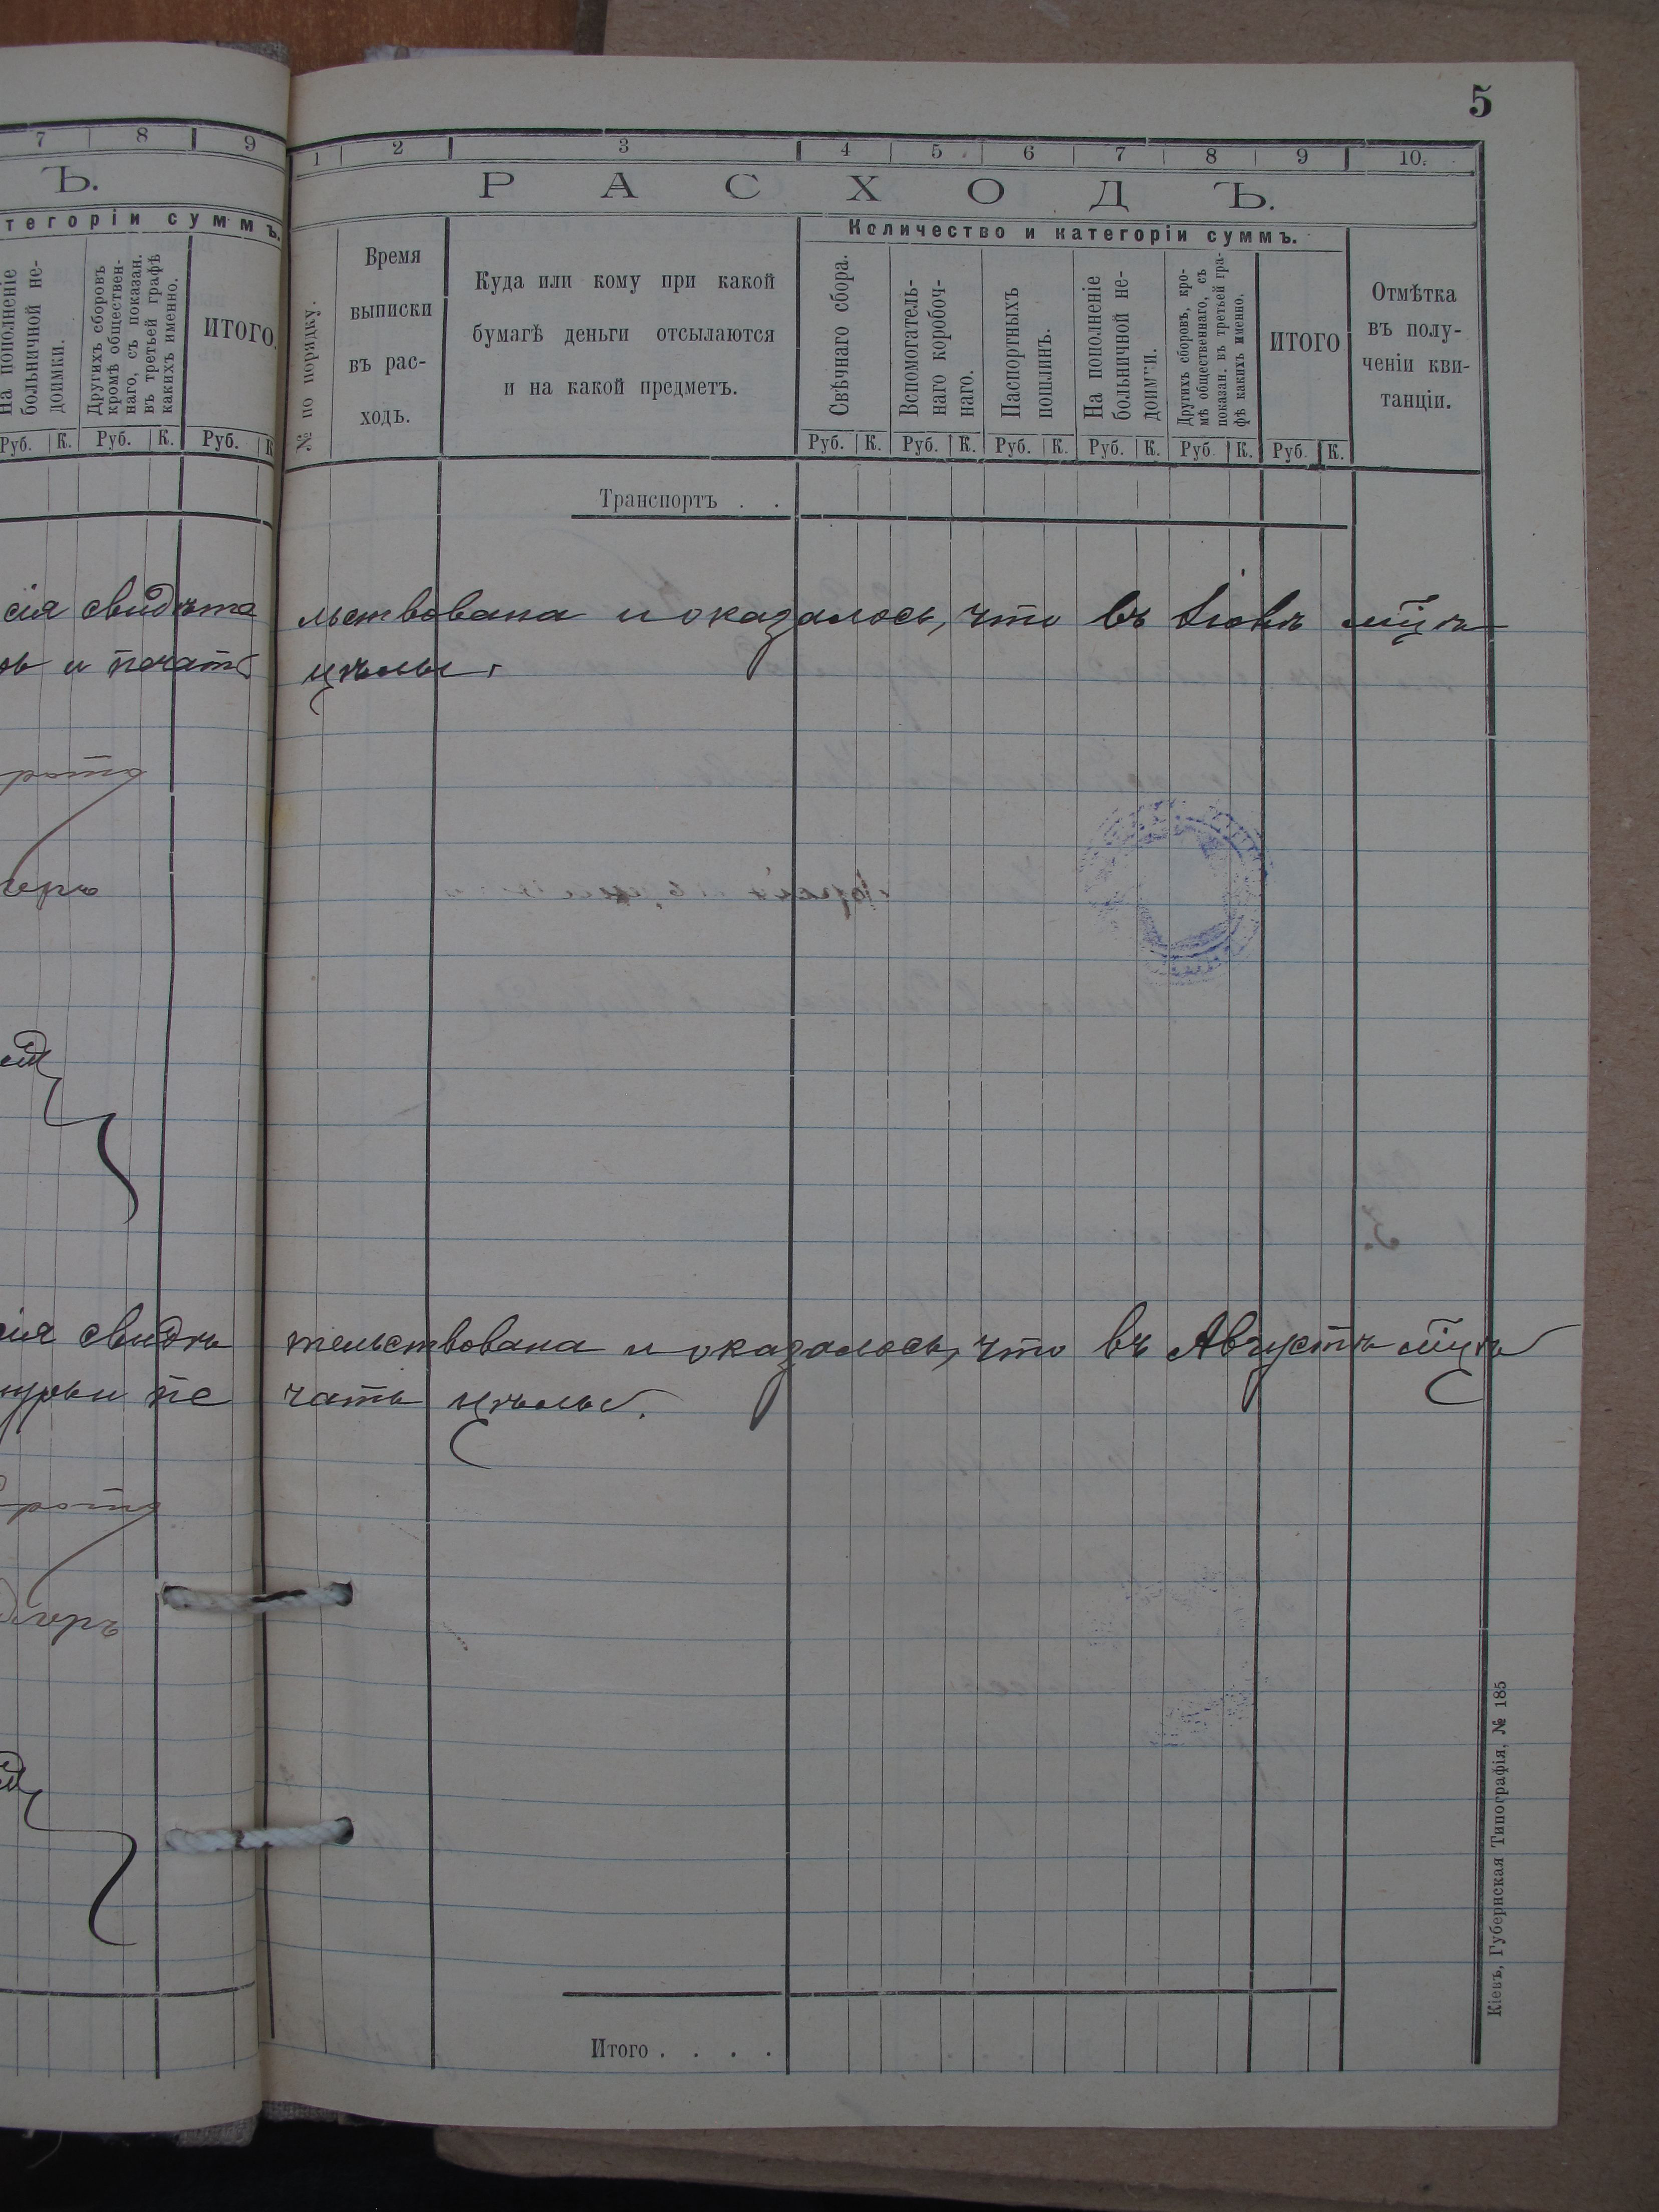 5
7 8 9
Ъ.
тегоріи суммъ.
На пополненіе
больничной не-
доимки.
Другихъ сборовъ
кромѣ обществен-
наго, съ показан.
въ третьей графѣ
какихъ именно.
ИТОГО.
Руб. К. Руб. К. Руб. К
1 2 3 4 5 6 7 8 9 10.
РАСХОДЪ.
Количество и категоріи суммъ.
№ по порядку.
Время
выписки
въ рас-
ходъ.
Куда или кому при какой
бумагѣ деньги отсылаются
и на какой предметъ.
Свѣчнаго сбора.
Вспомогатель-
наго коробоч-
наго.
Паспортныхъ
пошлинъ.
На пополненіе
больничной не-
доимки.
Другихъ сборовъ, кро-
мѣ общественнаго, съ
показан. въ третьей гра-
фѣ какихъ именно.
ИТОГО
Отмѣтка
въ полу-
ченіи кви-
танціи.
Руб. К. Руб. К. Руб. К. Руб. К. Руб. К. Руб. К.
Транспортъ . .
сія свидѣте льствована и оказалось, что въ Іюлѣ м͠цѣ
и печать цѣлы.
сія свидѣ тельствована и оказалось, что въ Августѣ м͠цѣ
пе чать цѣлы.
Итого . . . .
Кіевъ, Губернская Типографія, № 185